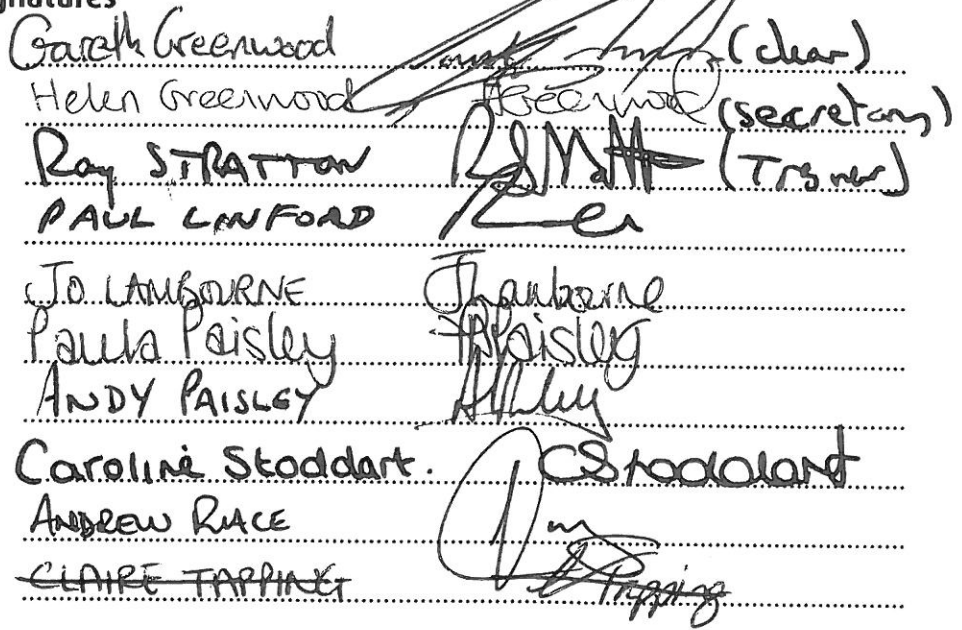 gnatures
Gareth Greenwood (chair)
Helen Greenwood HGreenwood (secretary)
Ray STRATTON
PAUL LINFORD
JO LAMBOURNE JLambourne
Paula Paisley PAPaisley
ANDY PAISLEY
Caroline Stoddart. CStoddart
ANDREW RACE
CLAIRE TAPPING Tapping